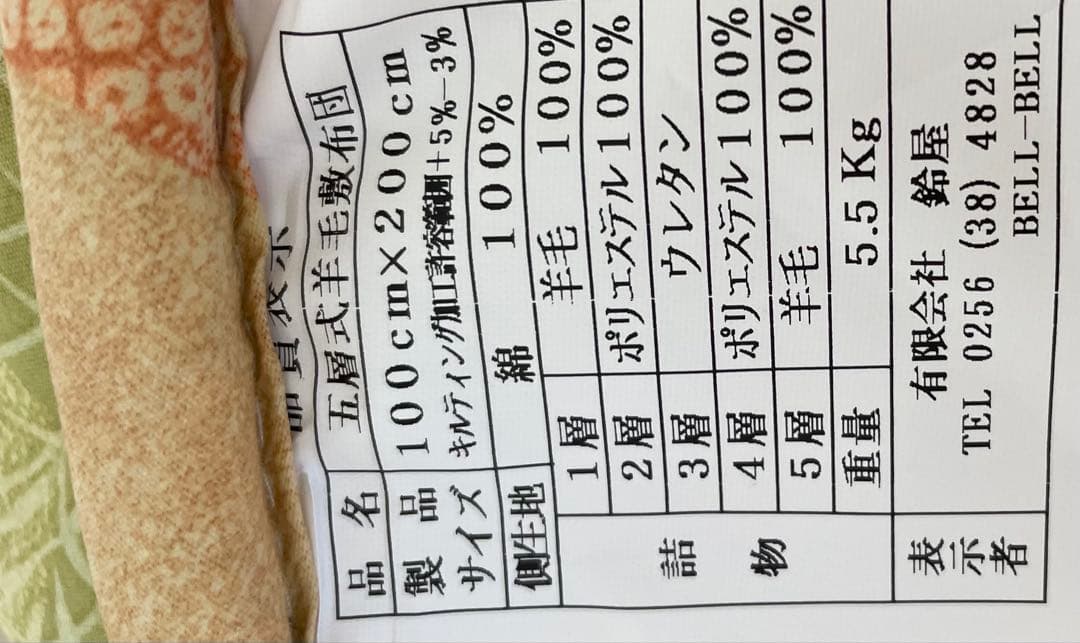 品質表示
品名 五層式羊毛敷布団
製品サイズ 100cm×200cm
キルティング加工許容範囲+5%-3%
側生地 綿 100%
詰物 1層 羊毛 100%
2層 ポリエステル100%
3層 ウレタン
4層 ポリエステル100%
5層 羊毛 100%
重量 5.5Kg
表示者 有限会社 鈴屋
TEL 0256 (38) 4828
BELL-BELL